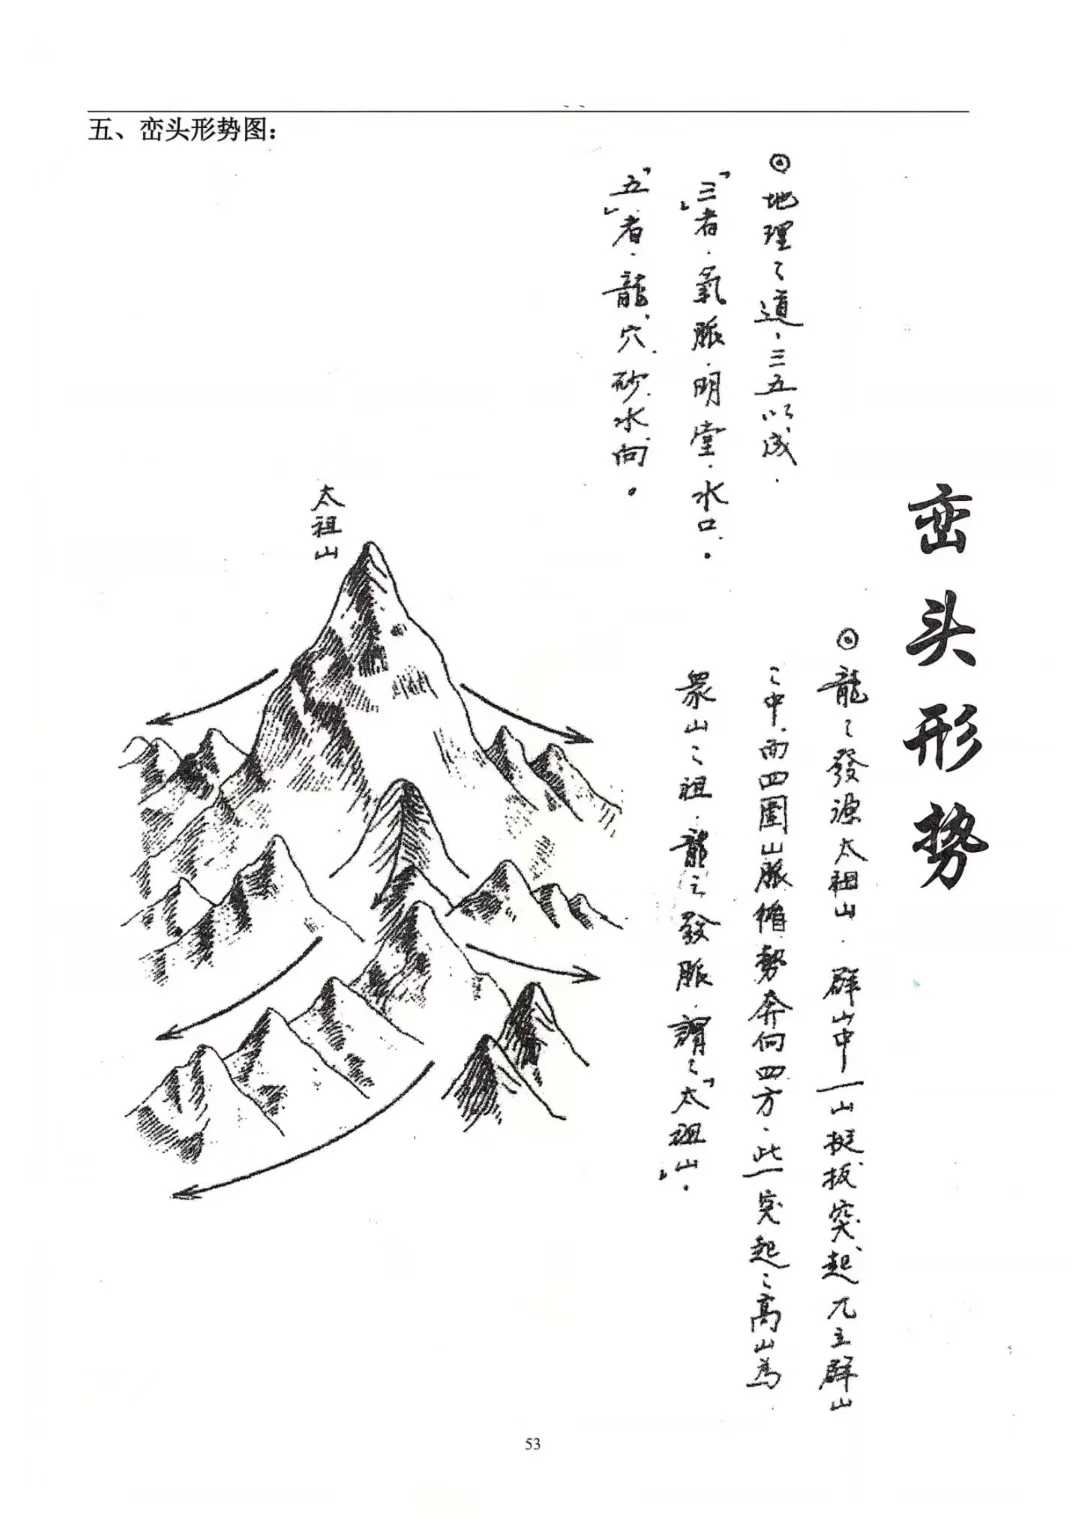 五、峦头形势图：
峦头形势
◎地理之道，三五以成．
「三」者．氣脈．明堂．水口．
「五」者．龍．穴．砂．水．向。
◎龍之發源太祖山．群山中一山挺拔突起兀立群山
之中，而四圍山脈循勢奔向四方．此一突起之高山為
眾山之祖．龍之發脈．謂之「太祖山」．
太祖山
53